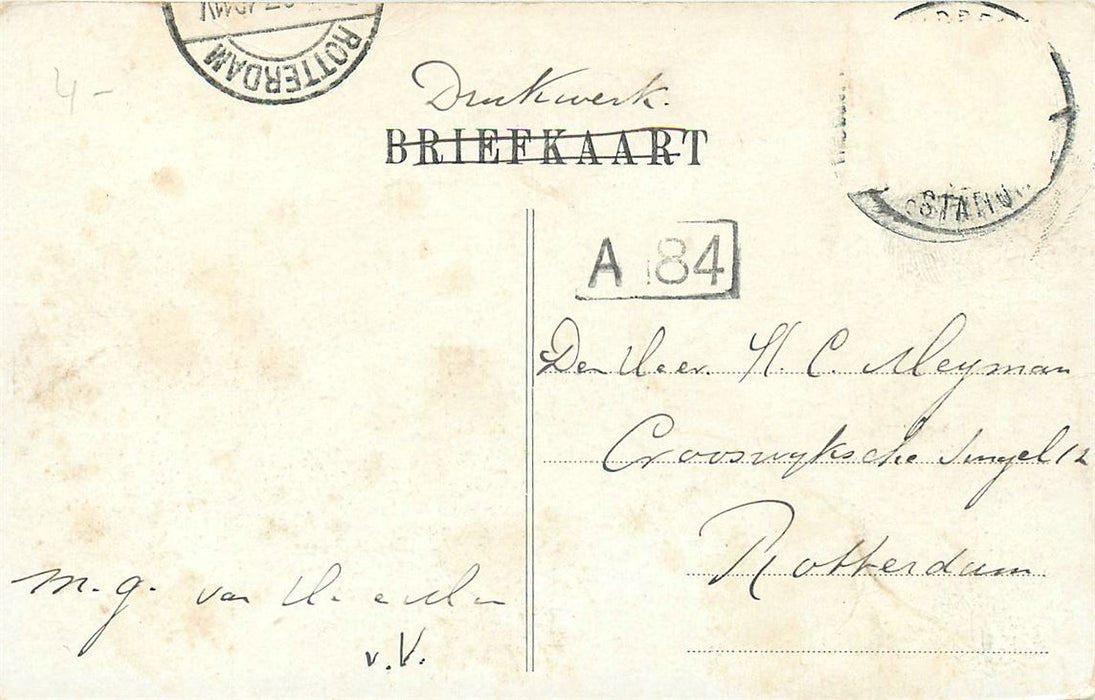 4-
ROTTERDAM
Drukwerk.
BRIEFKAART
STAND
A 84
Den Heer. H. C. Meyman
Crooswyksche Singel 12
Rotterdam
M. g. van
v. V.